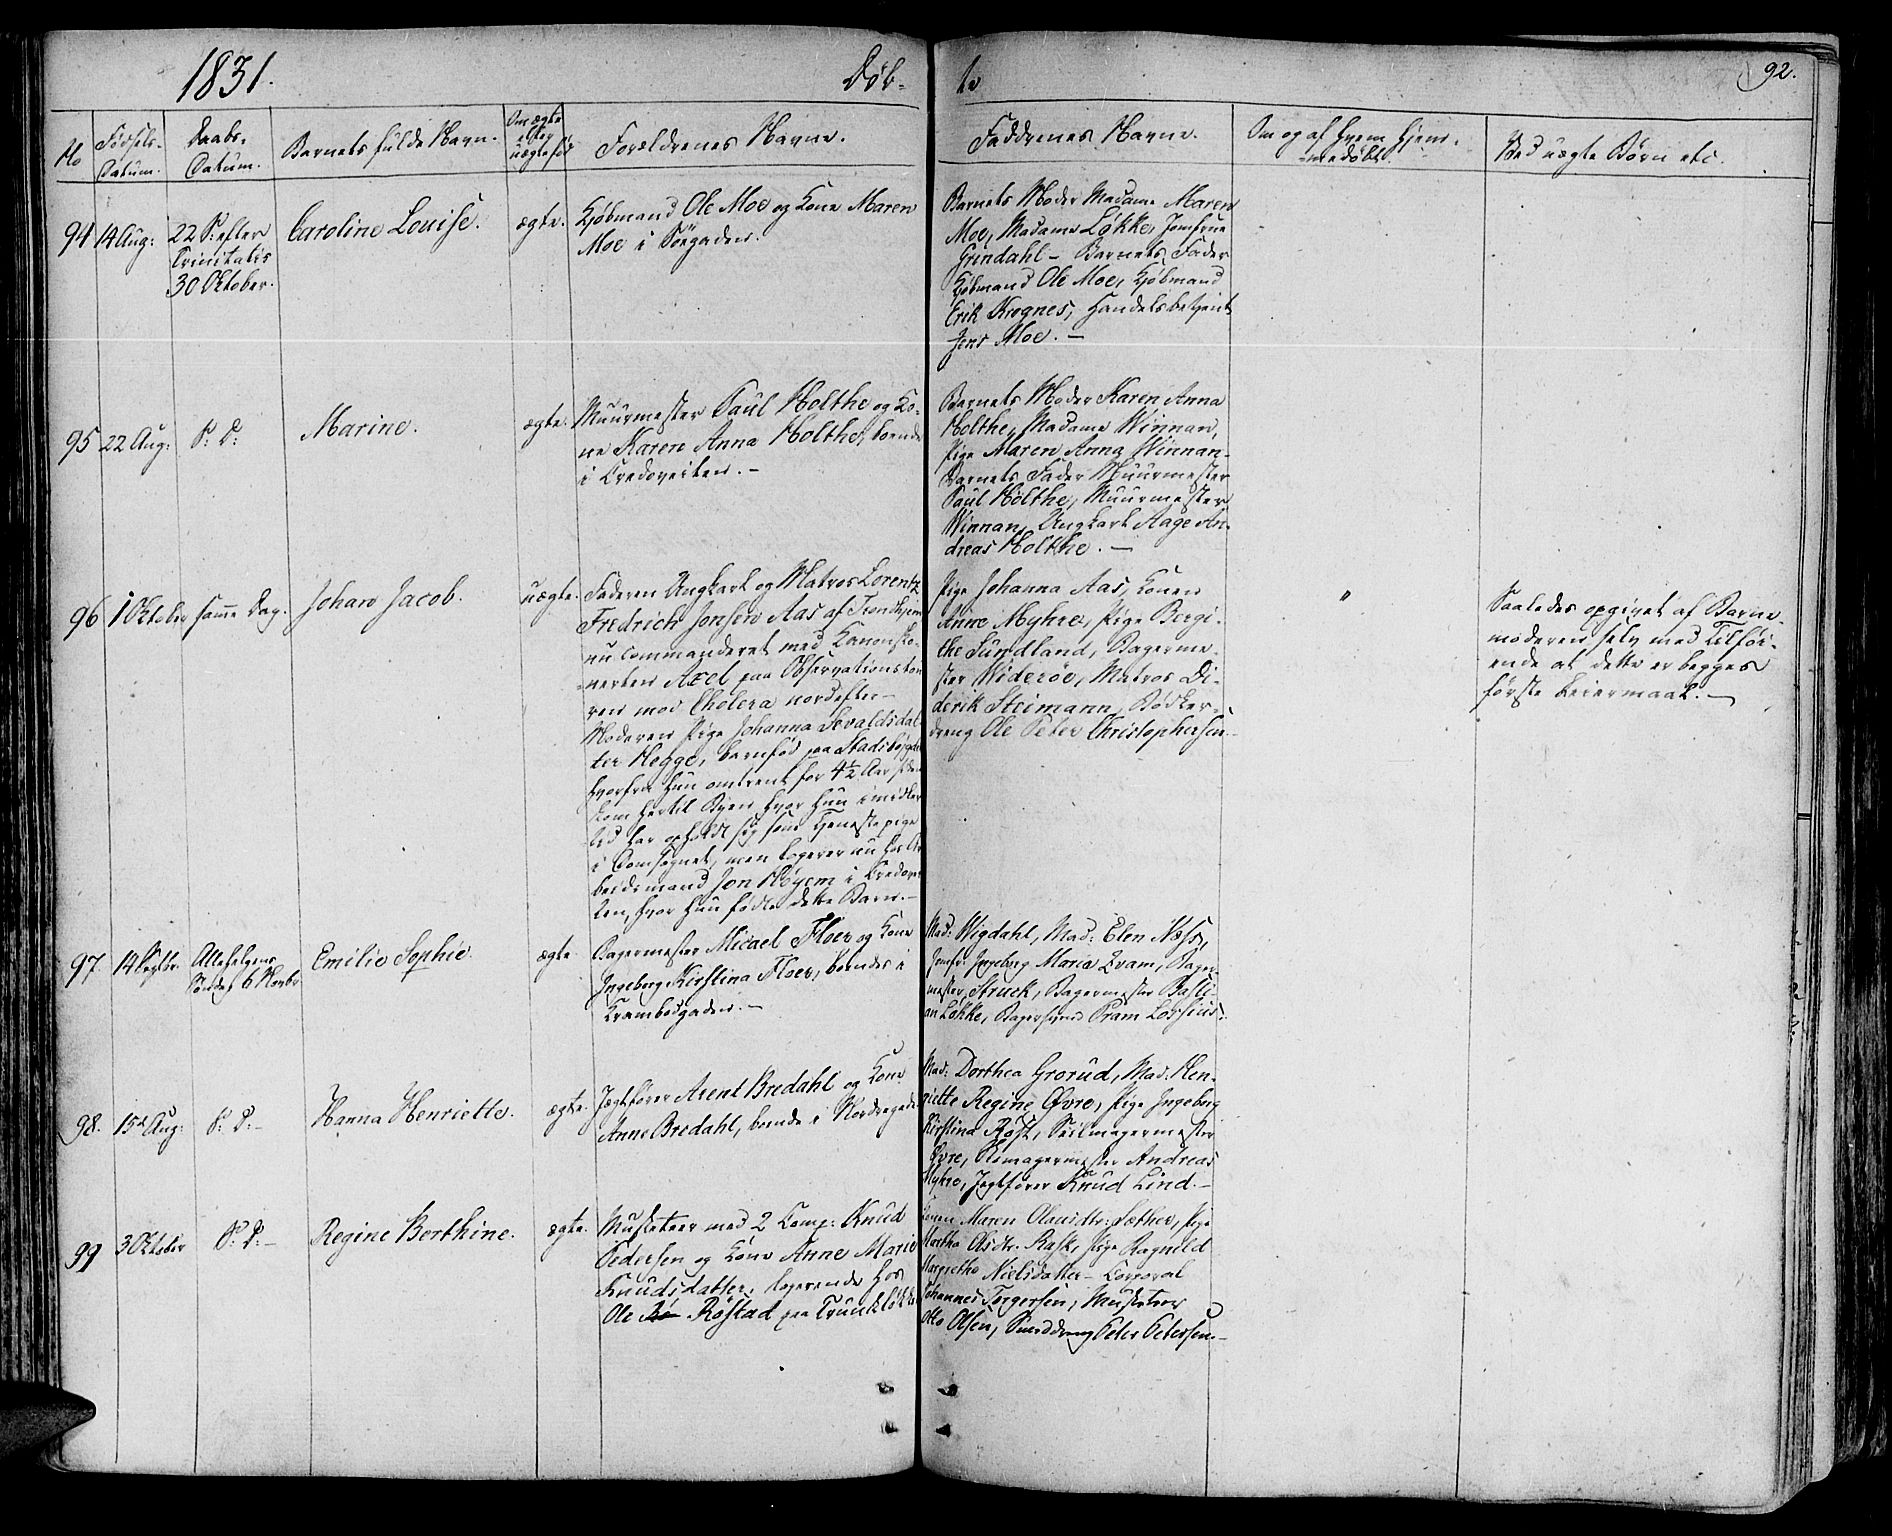 1831.
Døb-
te
92.
No
Fødsels-
Datum.
Daabs-
Datum.
Barnets fulde Navn.
Om ægte
eller
uægtefød
Forældrenes Navne.
Faddrenes Navne.
Om og af hvem hjem-
medøbt.
Ved uægte Børn etc.
94
14 Aug:
22 S: efter
Trinitatis
30 Oktober.
Caroline Louise.
ægte.
Kjøbmand Ole Moe og Kone Maren
Moe i Søegaden.
Barnets Moder Madame Maren
Moe, Madame Løkke, Jomfrue
Grindahl - Barnets Fader
Kjøbmand Ole Moe, Kjøbmand
Erik Krognes, Handelsbetjent
Jens Moe. -
95
22 Aug:
S: D:
Marine.
ægte.
Muurmester Paul Holthe og Ko-
ne Karen Anna Holthe, boende
i Credoveiten. -
Barnets Moder Karen Anna
Holthe, Madame Winnan,
Pige Maren Anna Winnan -
Barnets Fader Muurmester
Paul Holthe, Muurmester
Winnan, Ungkarl Aage An-
dreas Holthe. -
96
1 Oktober
samme Dag.
Johan Jacob.
uægte.
Faderen Ungkarl og Matros Lorentz
Fredrich Jonsen Aas af Trondhjem
nu commanderet med Kanonsko-
nerten Axel paa Observationstou-
ren mod Cholera nordefter -
Moderen Pige Johanna Sevaldsdat-
ter Hegge, barnfød paa Stadsbøygden
hvorfra hun omtrent for 4½ Aar siden
kom hertil Byen hvor hun imidler-
tid har opholdt sig som Tjenestepige
i Domsognet, men logerer nu hos Ar-
beidsmand Jon Høyem i Credovei-
ten, hvor hun fødte dette Barn. -
Pige Johanna Aas, Konen
Anne Myhre, Pige Bergi-
the Sundland, Bagerme-
ster Widerøe, Matros Di-
derik Steimann, Bødker-
dreng Ole Peter Christophersen. -
"
Saaledes opgivet af Barne-
moderen selv med Tilføi-
ende at dette er begges
første Leiermaal. -
97.
14 Septbr.
Allehelgens
Søndag 6 Novbr
Emilie Sophie.
ægte
Bagermester Micael Floer og Kone
Ingeborg Kirstina Floer, boende i
Krambodgaden. -
Mad: Wigdahl, Mad: Elen Næss,
Jomfr: Ingeborg Maria Evam, Bager-
mester Struck, Bagermester Basti-
an Løkke, Bagersvend Pram Lossius.
98.
15de Aug:
S: D: -
Hanna Henriette.
ægte.
Jægtfører Arent Bredahl og Kone
Anne Bredahl, boende i Nordregade
Mad: Dorthea Grorud, Mad: Hen-
riette Regine Øvre, Pige Ingeborg
Kirstina Røst, Seilmagermester
Øvre, Remagermester Andreas
Myhre, Jægtfører Knud Lind. -
99
3 Oktober
S: D: -
Regine Berthine.
ægte.
Musketeer med 2 Comp: Knud
Pedersen og Kone Anne Marie
Knudsdatter, logerende hos
Ole Røstad paa Trundløkken
Konen Maren Olausdtr: Sæther, Pige
Martha Olsdtr. Rask, Pige Ragnild
Margretha Nielsdatter - Corporal
Johannes Torgersen, Musketeer
Otto Olsen, Smeddreng Peter Petersen. -